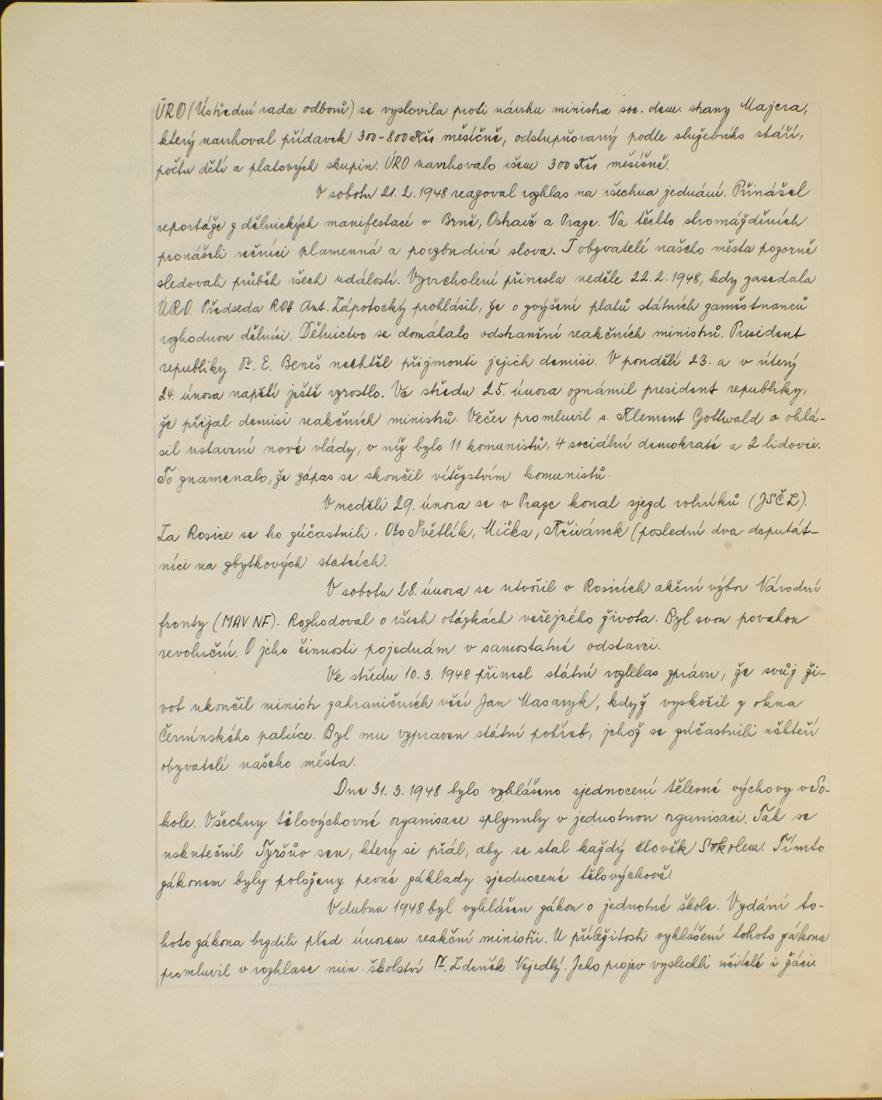 ÚRO (Ústřední rada odborů) se vyslovila proti návrhu ministra soc. dem. strany Majera,
který navrhoval přídavek 300-800 Kčs měsíčně, odstupňovaný podle služebního stáří,
počtu dětí a platových skupin. ÚRO navrhovalo všem 300 Kčs měsíčně.
V sobotu 21.2.1948 reagoval rozhlas na všechna jednání. Přinášel
reportáže z dělnických manifestací v Brně, Ostravě a Praze. Na těchto shromážděních
pronášeli řečníci plamenná a povzbudivá slova. I obyvatelé našeho města pozorně
sledovali průběh všech událostí. Vyvrcholení přinesla neděle 22.2.1948, kdy zasedala
ÚRO. Předseda ROH Ant. Zápotocký prohlásil, že o zvýšení platů státních zaměstnanců
rozhodnou dělníci. Dělnictvo se domáhalo odstranění reakčních ministrů. President
republiky Dr. E. Beneš nechtěl přijmouti jejich demisi. V pondělí 23. a v úterý
24. února napětí ještě vzrostlo. Ve středu 25. února oznámil president republiky,
že přijal demisi reakčních ministrů. Večer promluvil s. Klement Gottwald a ohlá-
sil ustavení nové vlády, v níž bylo 11 komunistů, 4 sociální demokraté a 2 lidovci.
To znamenalo, že zápas se skončil vítězstvím komunistů.
V neděli 29. února se v Praze konal sjezd rolníků (JSČZ).
Za Rosice se ho zúčastnili: Oto Světlík, Mička, Křivánek (poslední dva deputát-
níci na zbytkových statcích).
V sobotu 28. února se utvořil v Rosicích akční výbor Národní
fronty (MAV NF). Rozhodoval o všech otázkách veřejného života. Byl svou povahou
revoluční. O jeho činnosti pojednám v samostatné odstavci.
Ve středu 10.3.1948 přinesl státní rozhlas zprávu, že svůj ži-
vot ukončil ministr zahraničních věcí Jan Masaryk, když vyskočil z okna
Černínského paláce. Byl mu vypraven státní pohřeb, jehož se zúčastnili někteří
obyvatelé našeho města.
Dne 31.3.1948 bylo vyhlášeno sjednocení tělesné výchovy v So-
kole. Všechny tělovýchovné organisace splynuly v jednotnou organisaci. Tak se
uskutečnil Tyršův sen, který si přál, aby se stal každý člověk Sokolem. Tímto
zákonem byly položeny pevné základy sjednocené tělovýchově.
V dubnu 1948 byl vyhlášen zákon o jednotné škole. Vydání to-
hoto zákona brzdili před únorem reakční ministři. U příležitosti vyhlášení tohoto zákona
promluvil v rozhlase min. školství Dr. Zdeněk Nejedlý. Jeho projev vyslechli učitelé i žáci.